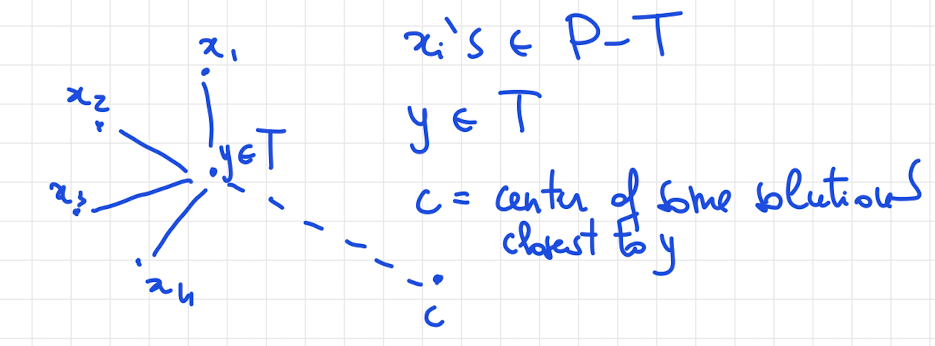 x₁
x₂
x₃
x₄
y ∈ T
c
xᵢ's ∈ P - T
y ∈ T
c = center of some solution S
closest to y